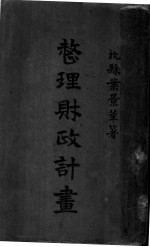 杭縣葉景莘著
整理財政計畫